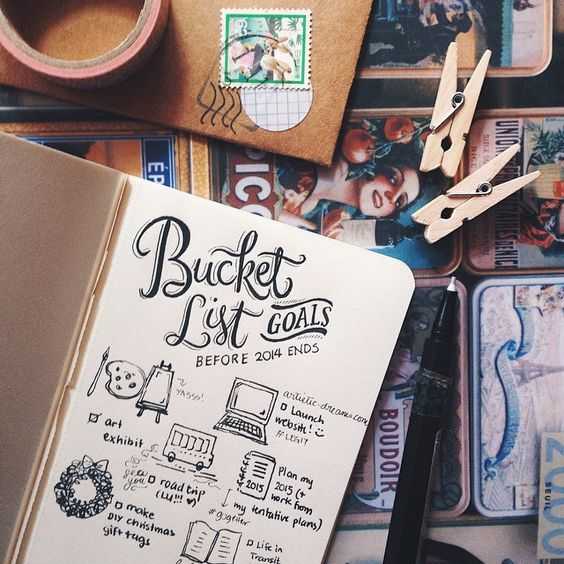 Bucket
List GOALS
BEFORE 2014 ENDS
YASSS!
art
exhibit
artistic-dreams.com
Launch
website! :)
#LEGIT
road trip
(LU!!! ♡)
Plan my
2015 (+
work from
my tentative plans)
2015
#gogetter
make
DIY christmas
gift tags
Life in
Transit
BOUDOIR
SEOUL